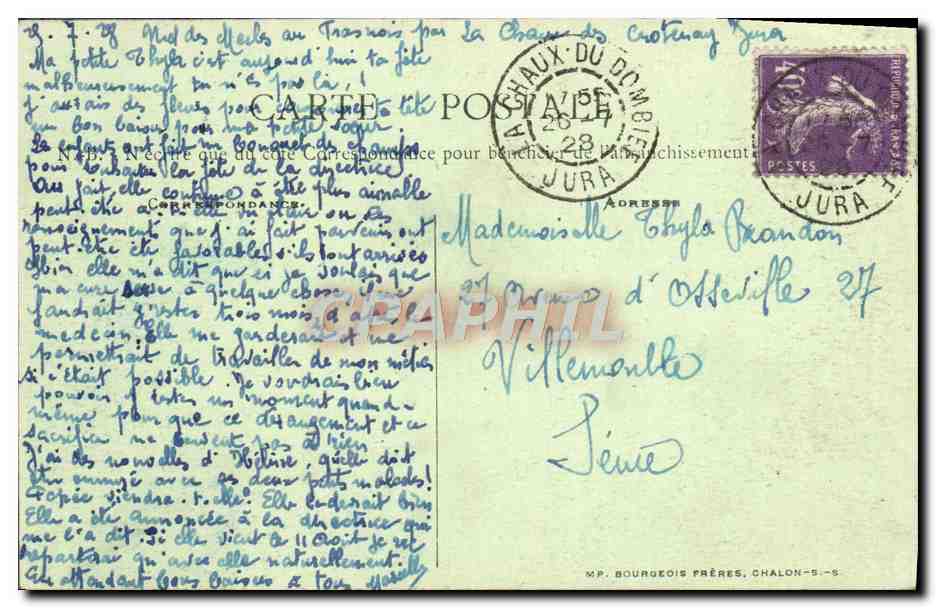 25.7.28 Nid des Merles au Frasnois par La Chaux des Crotenay Jura
Ma petite Thyla c'est aujourd'hui ta fête
malheureusement tu n'es pas là !
j'aurais des fleurs pour ta fête
un bon baiser pour ma petite sœur
CARTE POSTALE
Les enfants ont fait un bouquet des champs
N.-B. - N'écrire que du côté Correspondance pour bénéficier de l'affranchissement
pour la fête de la directrice
Au fait, elle continue à être plus aimable
CORRESPONDANCE
ADRESSE
peut-être a-t-elle vu que les
renseignements que j'ai fait parvenir ont
peut-être été favorables s'ils sont arrivés
elle m'a dit que si je voulais que
ma cure serve à quelque chose il me
faudrait rester trois mois d'après le
medecin. Elle me garderait et me
permettrait de travailler de mon métier
si c'était possible. Je voudrais bien
pouvoir rester un moment quand-
même pour que ce dérangement et ce
sacrifice ne servent pas à rien
J'ai des nouvelles d'Hélène, qu'elle doit
être ennuyée avec ses deux petits malades !
viendra-t-elle ? Elle bien
Elle a été annoncée à la directrice qui
me l'a dit. Si elle vient le 11 Août je ne
repartirai qu'avec elle naturellement.
En attendant bons baisers à tous Marcelle
LA CHAUX-DU-DOMBIEF
26 - 7
28
JURA
40c
REPUBLIQUE FRANÇAISE
POSTES
JURA
Mademoiselle Thyla Brandon
27 Avenue d'Osseville 27
Villemonble
Seine
CPAPHIL
IMP. BOURGEOIS FRÈRES, CHALON-S.-S.